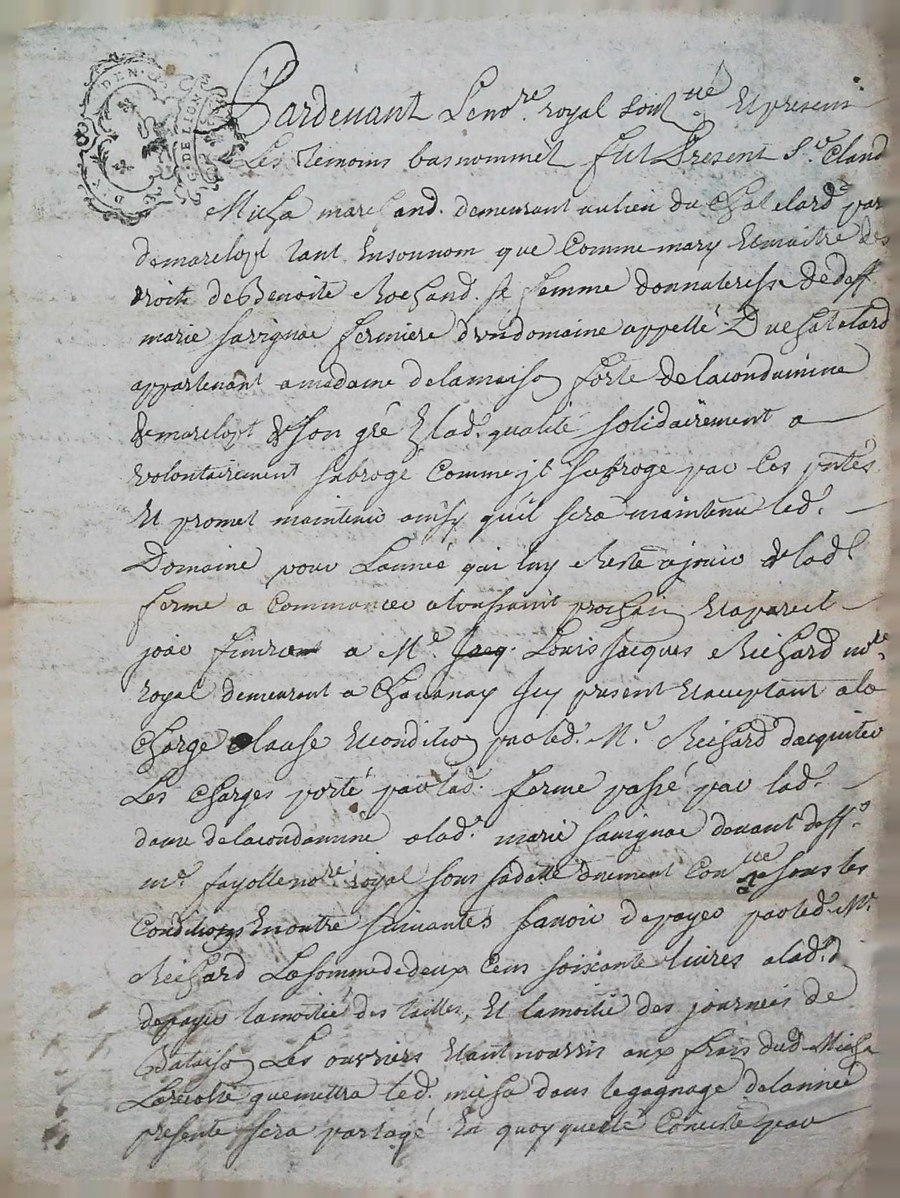 DEN
G. DE LION
Pardevant Le no.re royal sous.né Et presens
Les temoins bas nommet fut Present S.r Claud
Micha marchand demeurant au lieu du Chatelard par
de marclopt tant En son nom que Comme mary Et maitre des
droits de Benoite Rochand sa femme donnateresse de deff
marie savignac fermiere d'un domaine appellé Du Chatelard
appartenant a madame de la maison forte de la condamine
de marclopt de son gré Et lad. qualité solidairement a
volontairement subrogé Comme jl subroge par Ces pntes
Et promet maintenir ainsy qu'il sera maintenu led.
Domaine pour L'année qui luy Reste a jouir de lad.
ferme a Commancer a toussaint prochain Et a pareil
jour finiront a M.e Jacq. Louis Jacques Richard no.re
royal demeurant a Chavanay Jcy present Et acceptant a la
Charge Clause Et condition par led. M.e Richard d'acquiter
Les Charges porté par lad. ferme passé par lad.
dame de la condamine a lad. marie savignac devant deff.
m.e fayolle no.re royal sous sa datte duement con.lée sous les
Conditions En outre suivantes savoir de payer par led. M.e
Richard La somme de deux Cens soixante livres a lad. d
de payer la moitié des tailles, Et la moitié des journées de
Les ouvriers Etant nourris aux frais dud. Micha
La recolte que mettra led. micha dans le gagnage de l'année
presente sera partagé En quoy qu'elle Consiste par